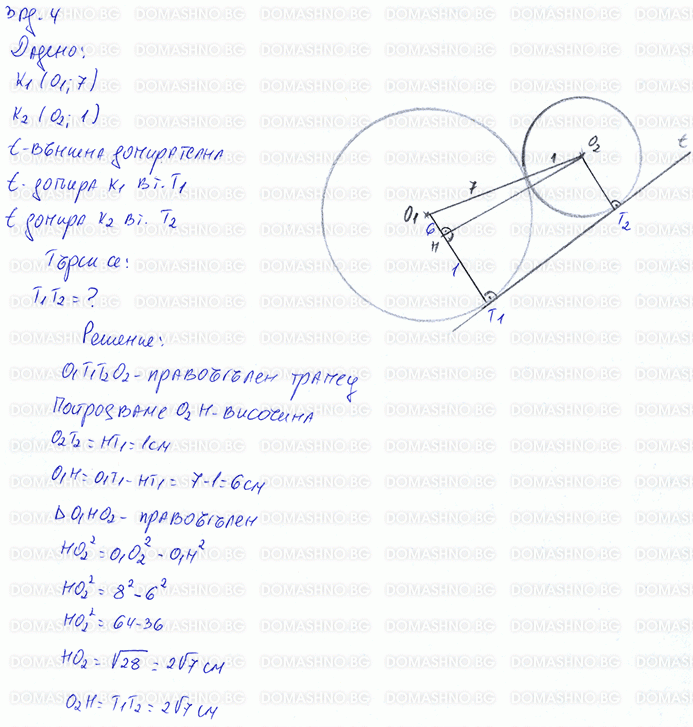 Зад. 4
Дадено:
K₁ (O₁; 7)
K₂ (O₂; 1)
t - външна допирателна
t - допира K₁ в т. T₁
t допира K₂ в т. T₂
Търси се:
T₁T₂ = ?
Решение:
O₁T₁T₂O₂ - правоъгълен трапец
Построяваме O₂H - височина
O₂T₂ = HT₁ = 1 см
O₁H = O₁T₁ - HT₁ = 7 - 1 = 6 см
Δ O₁HO₂ - правоъгълен
HO₂² = O₁O₂² - O₁H²
HO₂² = 8² - 6²
HO₂² = 64 - 36
HO₂ = √28 = 2√7 см
O₂H = T₁T₂ = 2√7 см
O₂
t
1
7
O₁
6
H
T₂
1
T₁
DOMASHNO.BG